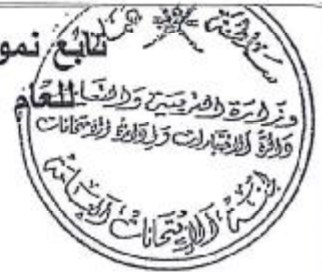 تابع نمو
للعام
سلطنة عمان
وزارة التربية والتعليم
دائرة الاختبارات وإدارة الامتحانات
لجنة الامتحانات